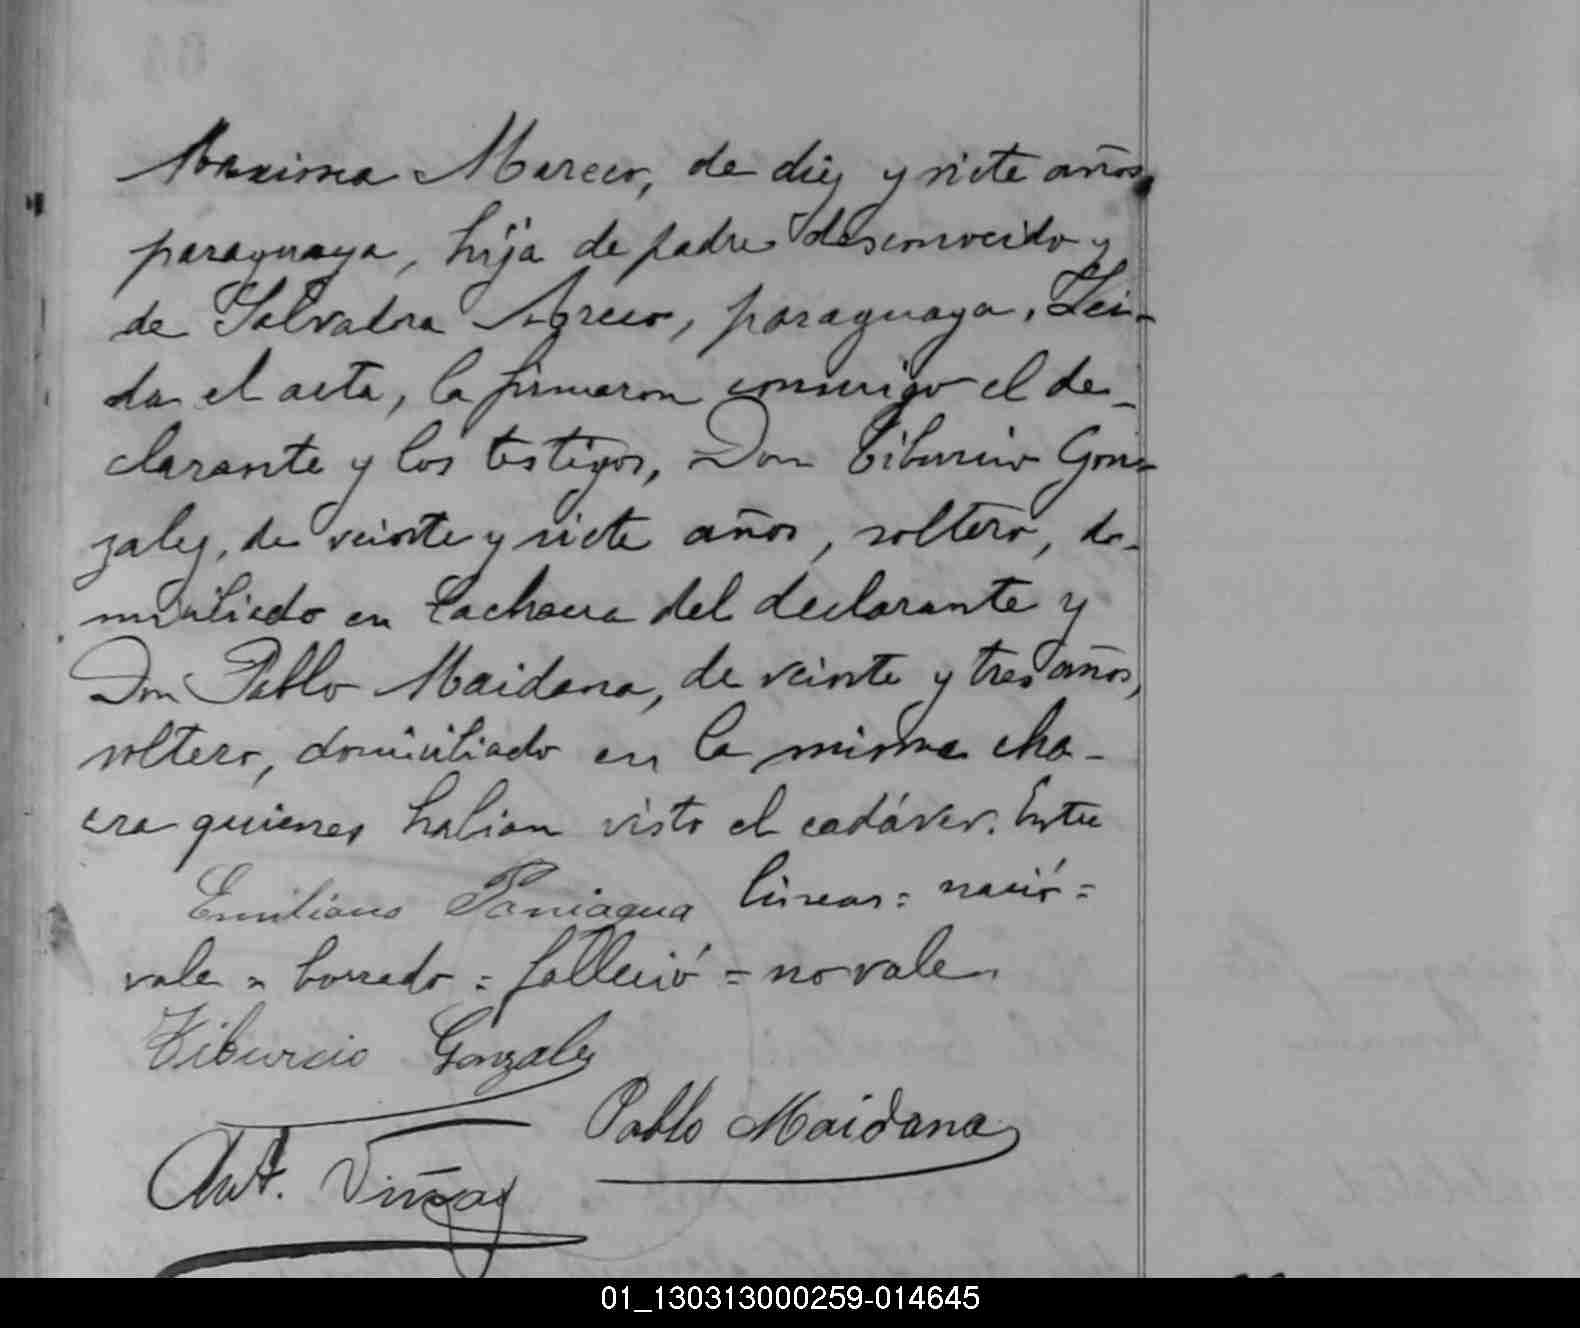 Maxima Marecos, de diez y siete años,
paraguaya, hija de padre desconocido y
de Salvadora Marecos, paraguaya. Lei-
da el acta, la firmaron conmigo el de-
clarante y los testigos, Don Tiburcio Gon-
zalez, de veinte y siete años, soltero, do-
miciliado en la chacra del declarante y
Don Pablo Maidana, de veinte y tres años,
soltero, domiciliado en la misma cha-
cra quienes habian visto el cadáver. Entre
Emiliano Paniagua lineas = nació =
vale = borrado = falleció = no vale.
Tiburcio Gonzalez
Pablo Maidana
Ant. Viñay
01_130313000259-014645